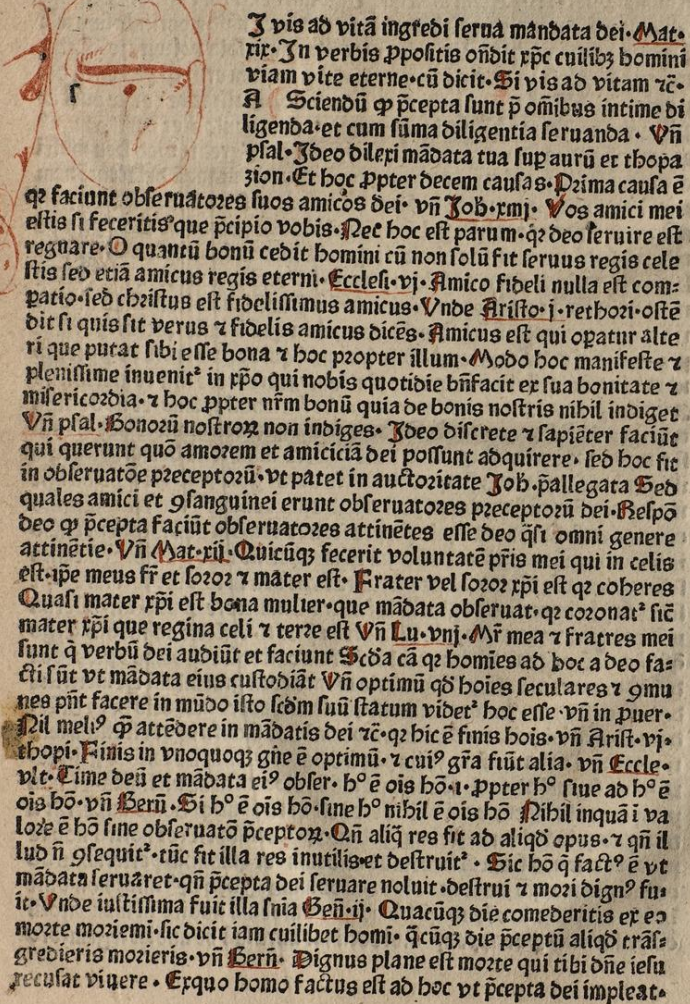 I vis ad vitā ingredi serua mandata dei·Mat·
xix·In verbis ꝓpositis oñdit xp̄c cuilibꝫ homini
viam vite eterne·cū dicit·Si vis ad vitam ⁊č·
A Sciendū ꝙ p̄cepta sunt p̄ om̄ibus intime di
ligenda·et cum sūma diligentia seruanda · Vn̄
psal·Ideo dilexi mādata tua suꝑ aurū et thopa
zion·Et hoc ꝓpter decem causas·Prima causa ē
qꝛ faciunt obseruatores suos amicos dei· vn̄ Joh·xiiij· Vos amici mei
estis si feceritis que p̄cipio vobis·Nec hoc est parum·qꝛ deo seruire est
regnare·O quantū bonū cedit homini cū non solū fit seruus regis cele
stis sed etiā amicus regis eterni·Ecclesi·vj·Amico fideli nulla est com⸗
ꝑatio·sed christus est fidelissimus amicus·Vnde Aristo·j·rethori·ostē
dit si quis sit verus ⁊ fidelis amicus dicēs·Amicus est qui oꝑatur alte
ri que putat sibi esse bona ⁊ hoc propter illum·Modo hoc manifeste ⁊
plenissime inuenit᷑ in xp̄o qui nobis quotidie bn̄facit ex sua bonitate ⁊
misericordia·⁊ hoc ꝓpter nr̄m bonū quia de bonis nostris nihil indiget
Vn̄ psal·Bonorū nostroꝝ non indiges· Ideo discrete ⁊ sapiēter faciūt
qui querunt quō amorem et amiciciā dei possunt adquirere· sed hoc fit
in obseruatōe preceptorū·vt patet in auctoritate Joh·p̄allegata Sed
quales amici et ꝯsanguinei erunt obseruatores preceptorū dei·Respō
deo ꝙ p̄cepta faciūt obseruatores attinētes esse deo q̄si omni genere
attinētie·Vn̄ Mat·xij·Quicūqꝫ fecerit voluntatē pr̄is mei qui in celis
est·ip̄e meus fr̄ et soror ⁊ mater est· Frater vel soror xp̄i est qꝛ coheres
Quasi mater xp̄i est bona mulier·que mādata obseruat·qꝛ coronat᷑ sic̄
mater xp̄i que regina celi ⁊ terre est Vn̄ Lu·viij·Mr̄ mea ⁊ fratres mei
sunt q̄ verbū dei audiūt et faciunt Scd̄a cā qꝛ homīes ad hoc a deo fa⸗
cti sūt vt mādata eius custodiāt Vn̄ optimū qd̄ hoīes seculares ⁊ ꝯmu
nes pn̄t facere in mūdo isto scd̄m suū statum videt᷑ hoc esse·vn̄ in ꝓuer·
Nil meliꝰ ꝙ̄ attēdere in mādatis dei ⁊č·qꝛ hic ē finis hoīs·vn̄ Arist·vj·
thopi·Finis in vnoquoqꝫ gn̄e ē optimū·⁊ cuiꝰ gr̄a fiūt alia· vn̄ Eccle·
vlt·Time deū et mādata eiꝰ obser· hᵒ ē oīs hō·i·ꝓpter hᵒ siue ad hᵒ ē
oīs hō·vn̄ Bern̄·Si hᵒ ē oīs hō·sine hᵒ nihil ē oīs hō Nihil inquā i va
lore ē hō sine obseruatō p̄ceptoꝝ·Qn̄ aliq̄ res fit ad aliqd̄ opus·⁊ qn̄ il
lud n̄ ꝯsequit᷑·tūc fit illa res inutilis et destruit᷑ · Sic hō q̄ factꝰ ē vt
mādata seruaret·qn̄ p̄cepta dei seruare noluit·destrui ⁊ mori dignꝰ fu⸗
it·Vnde iustissima fuit illa sn̄ia Gen̄·ij· Quacūqꝫ die comederitis ex eo
morte moriemi·sic dicit iam cuilibet homi· q̄cūqꝫ die p̄ceptū aliqd̄ trās⸗
gredieris morieris·vn̄ Bern̄· Dignus plane est morte qui tibi dn̄e iesu
recusat viuere · Exquo homo factus est ad hoc vt p̄cepta dei impleat·